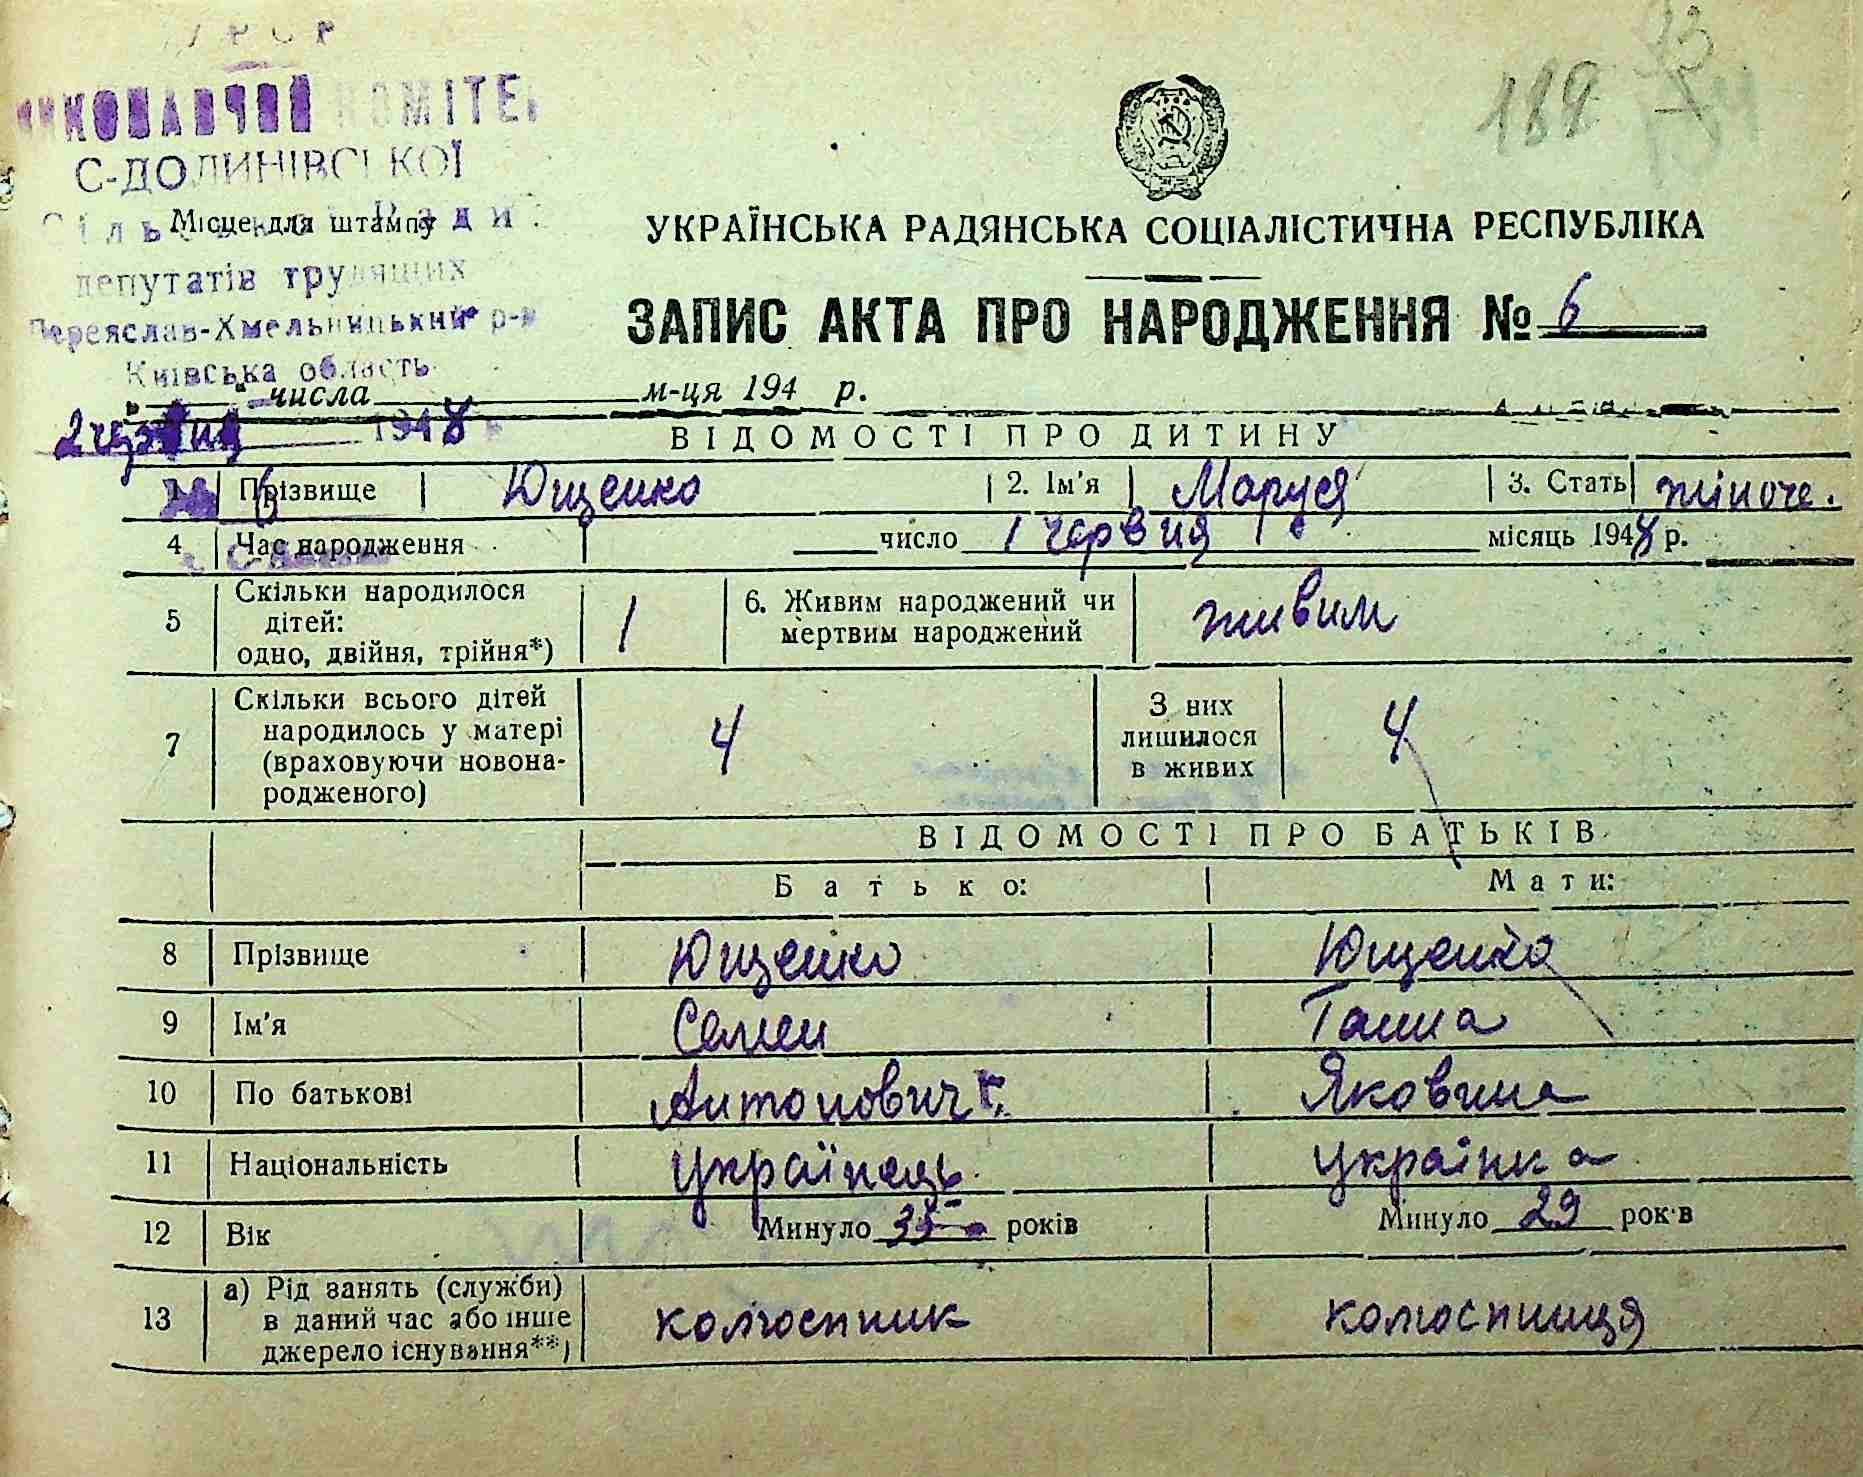 УРСР
ВИКОНАВЧИЙ КОМІТЕТ
С-ДОЛИНІВСЬКОЇ
Сільської Ради
Місце для штампу
депутатів трудящих
Переяслав-Хмельницький р-н
Київська область
189
УКРАЇНСЬКА РАДЯНСЬКА СОЦІАЛІСТИЧНА РЕСПУБЛІКА
ЗАПИС АКТА ПРО НАРОДЖЕННЯ № 6
числа м-ця 194 р.
2 червня 1948
ВІДОМОСТІ ПРО ДИТИНУ
1 Прізвище Ющенко 2. Ім'я Маруся 3. Стать жіноче.
6
4 Час народження число 1 червня місяць 1948 р.
5 Скільки народилося дітей: одно, двійня, трійня*) 1 6. Живим народжений чи мертвим народжений живим
7 Скільки всього дітей народилось у матері (враховуючи новонародженого) 4 З них лишилося в живих 4
ВІДОМОСТІ ПРО БАТЬКІВ
Батько: Мати:
8 Прізвище Ющенко Ющенко
9 Ім'я Семен Ганна
10 По батькові Антонович Яковина
11 Національність українець українка
12 Вік Минуло 35 років Минуло 29 років
13 а) Рід занять (служби) в даний час або інше джерело існування**) колгоспник колгоспниця